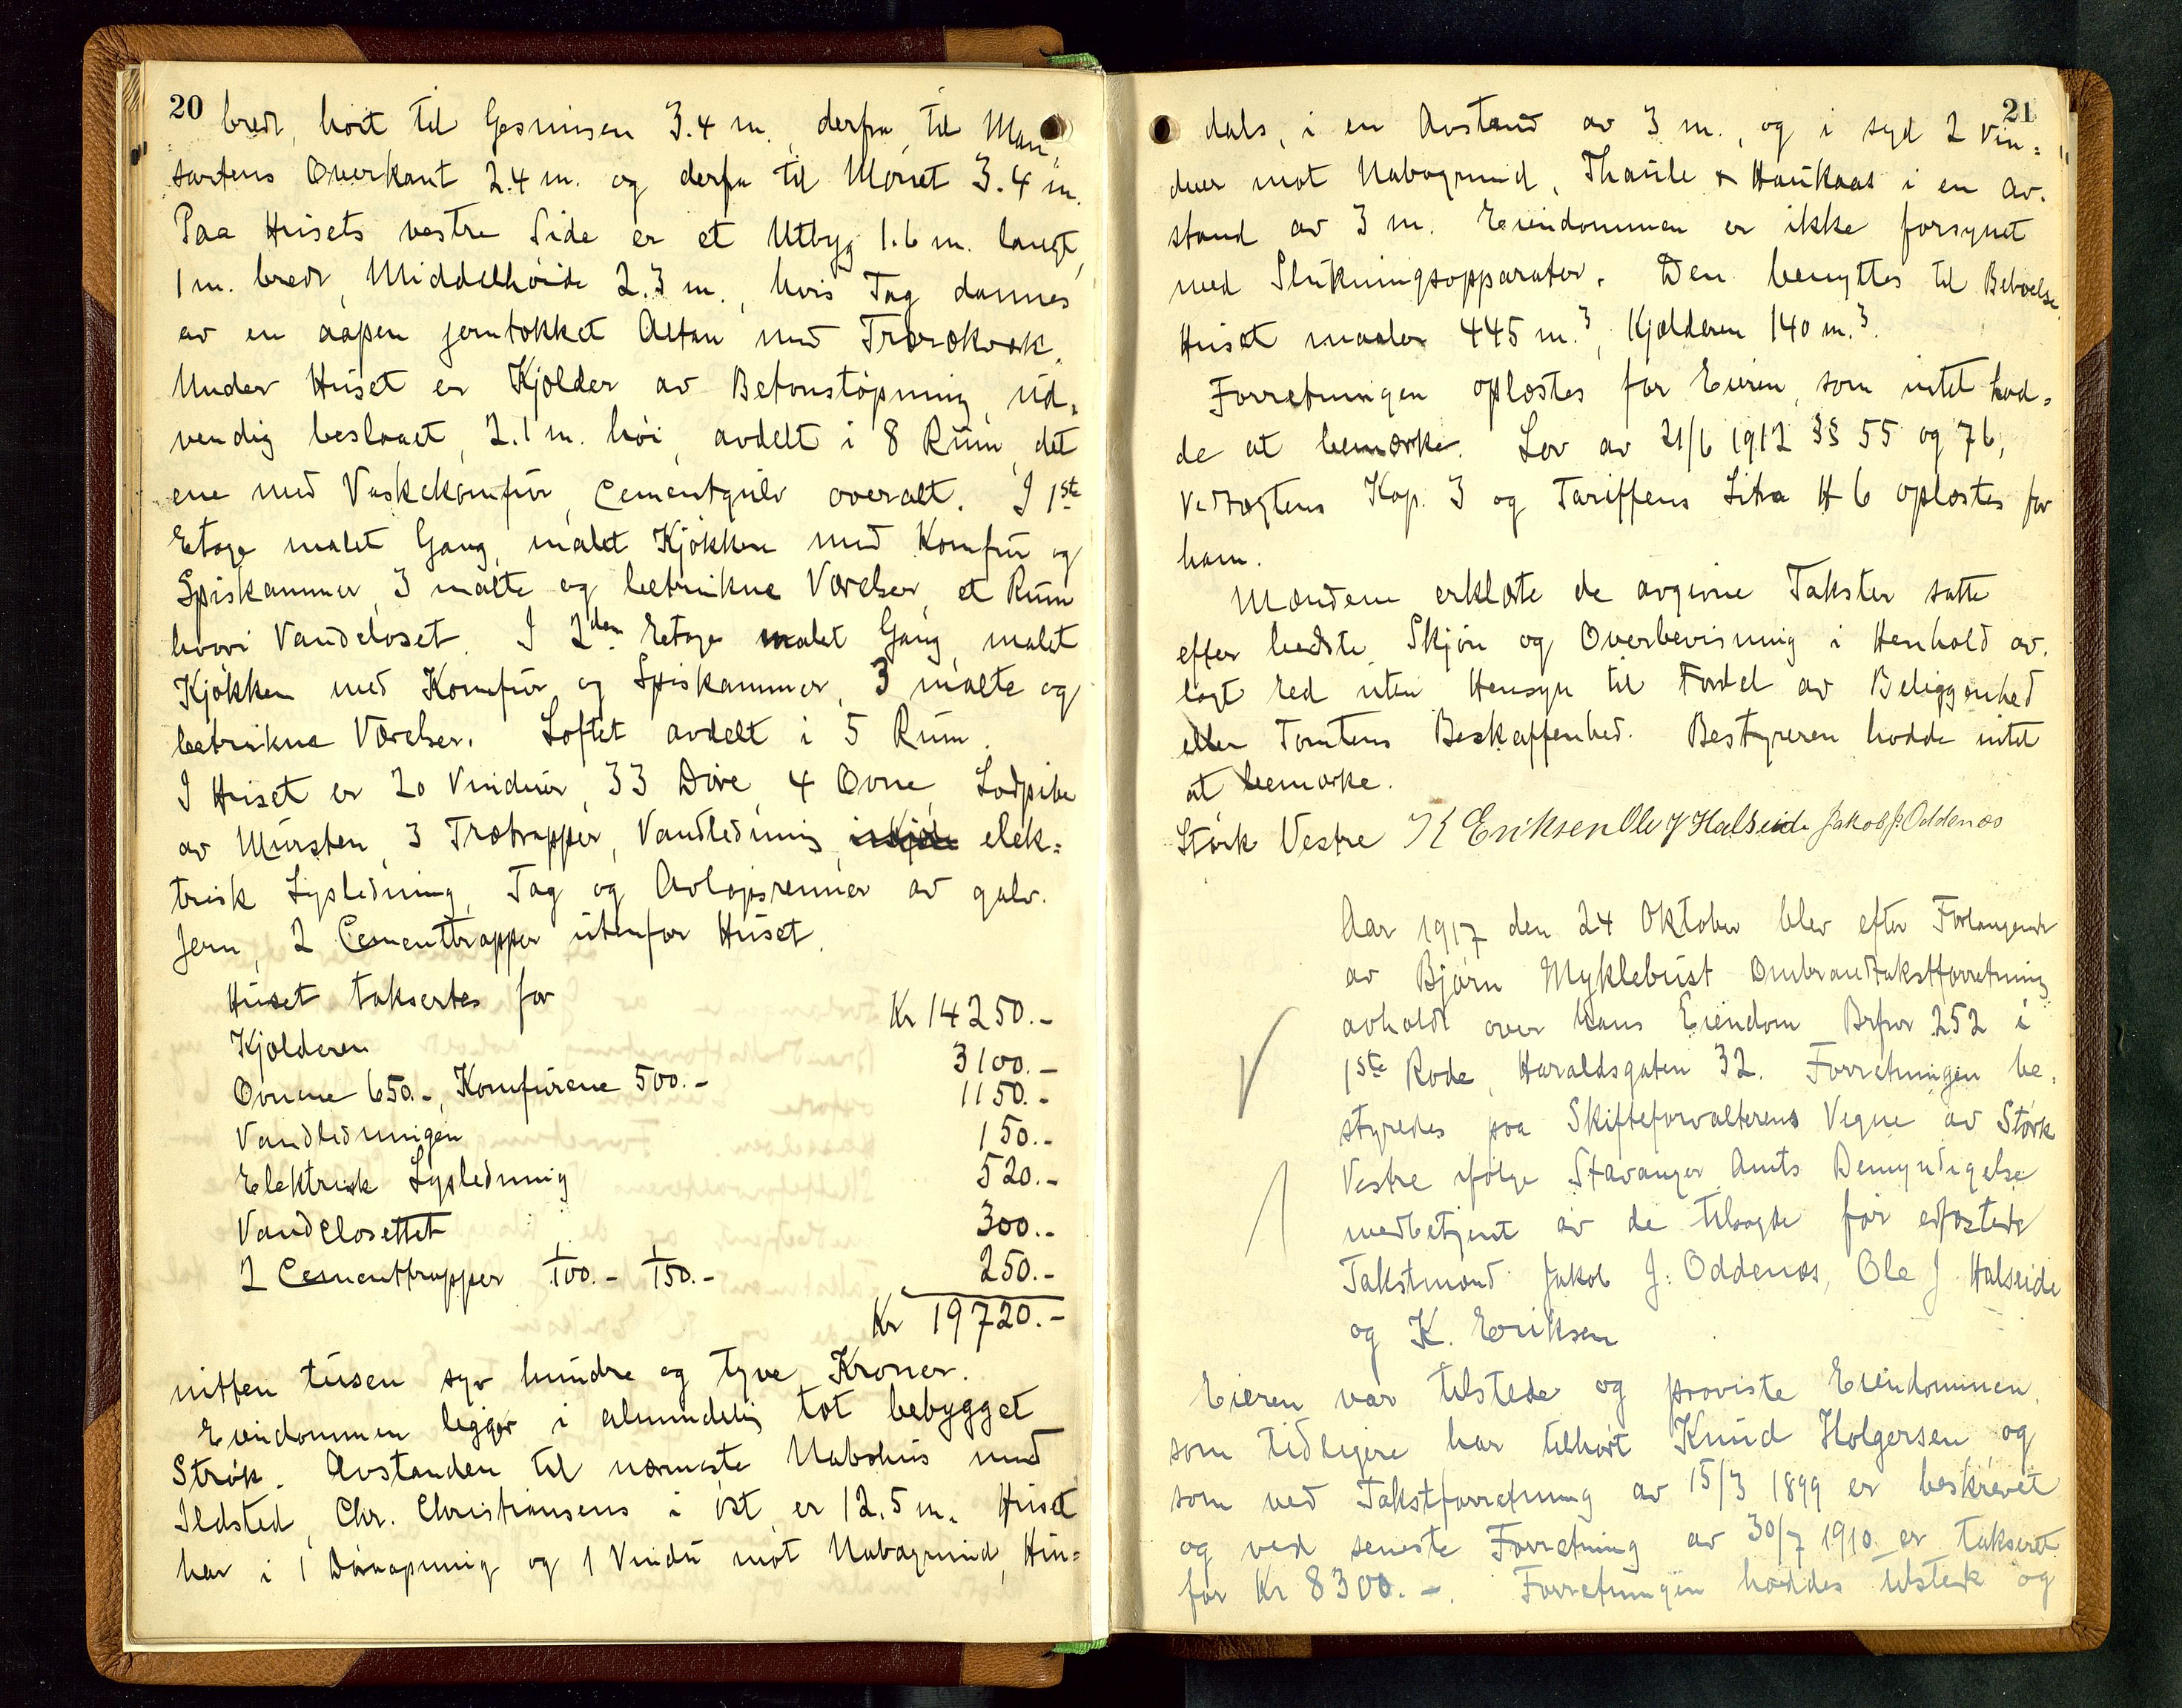 20
bredt, höit til Gesimsen 3.4 m., derfra til Man-
sartens Överkant 2.4 m. og derfra til Mönet 3.4 m.
Paa Husets vestre Side er et Utbyg 1.6 m. langt,
1 m. bredt, Middelhöide 2.3 m., hvis Tag dannes
av en aapen jerntækket Altan med Trærækværk.
Under Huset er Kjælder av Betonstöpning, ud-
vendig beslaaet, 2.1 m. höi, avdelt i 8 Rum, det
ene med Vaskekomfur, Cementgulv overalt. I 1ste
Etage malet Gang, malet Kjökken med Komfur og
Spiskammer, 3 malte og betrukne Værelser, et Rum
hvori Vandcloset. I 2den Etage malet Gang, malet
Kjökken med Komfur og Spiskammer, 3 malte og
betrukne Værelser. Loftet avdelt i 5 Rum.
I Huset er 20 Vinduer, 33 Döre, 4 Ovne, Lodpibe
av Mursten, 3 Trætrapper, Vandledning, elek=
trisk Lysledning, Tag og Avlöpsrenner av galv.
Jern, 2 Cementtrapper utenfor Huset.
Huset taksertes for Kr 14250.-
Kjælderen 3100.-
Ovnene 650.-, Komfurene 500.- 1150.-
Vandledningen 150.-
Elektrisk Lysledning 520.-
Vandclosettet 300.-
2 Cementtrapper 1/100.- 1/150.- 250.-
Kr 19720.-
nitten tusen syv hundre og tyve Kroner.
Eiendommen ligger i almindelig tæt bebygget
Strök. Avstanden til nærmeste Nabohus med
Ildsted, Chr. Christiansens i öst, er 12.5 m. Huset
har i 1 Döraapning og 1 Vindu mot Nabogrund, Hin=
21
dals, i en Avstand av 3 m., og i syd 2 Vin=
duer mot Nabogrund, Thaule & Haukaas i en Av-
stand av 3 m. Eiendommen er ikke forsynet
med Slukningsapparater. Den benyttes til Beboelse.
Huset maaler 445 m.3, Kjælderen 140 m.3.
Forretningen oplæstes for Eieren, som intet had=
de at bemærke. Lov av 21/6 1912 §§ 55 og 76,
Vedtægtens Kap. 3 og Tariffens Litra H 6 oplæstes for
ham.
Mændene erklærte de avgivne Takster satte
efter bedste Skjön og Overbevisning i Henhold av-
lagt Ed uten Hensyn til Fordel av Beliggenhed
eller Tomtens Beskaffenhed. Bestyreren hadde intet
at bemærke.
Störk Vestre K Eriksen Ole J Halseide Jakob J. Oddenæs
Aar 1917 den 24 Oktober blev efter Forlangende
av Björn Myklebust Ombrandtakstforretning
avholdt over hans Eiendom Brfnr 252 i
1ste Rode, Haraldsgaten 32. Forretningen be-
styredes paa Skifteforvalterens Vegne av Störk
Vestre ifölge Stavanger Amts Bemyndigelse
medbetjent av de tilsagte för edfæstede
Takstmænd Jakob J. Oddenæs, Ole J. Halseide
og K. Eriksen
Eieren var tilstede og paaviste Eiendommen,
som tidligere har tilhört Knud Holgersen, og
som ved Takstforretning av 15/3 1899 er beskrevet
og ved seneste Forretning av 30/7 1910 er taksert
for Kr 8300.-. Forretningen holdtes tilstede og